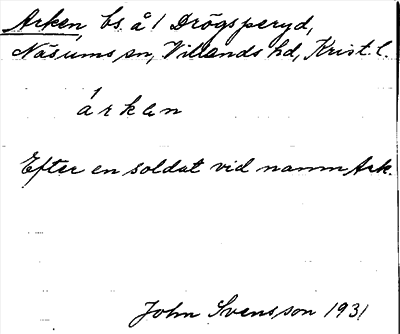 Arken, bs å 1 Drögsperyd,
Näsums sn, Villands hd, Krist. l.
árkən
Efter en soldat vid namn Ark.
John Svensson 1931